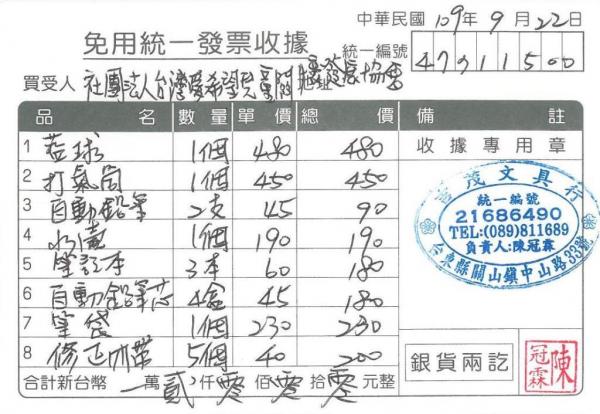 中華民國 109年 9月 22日
免用統一發票收據
統一編號 47911500
買受人 社團法人台灣愛希望兒童關懷發展協會 地址
品名 數量 單價 總價 備註
1 籃球 1個 480 480 收據專用章
2 打氣筒 1個 450 450
3 自動鉛筆 2支 45 90
4 水壺 1個 190 190
5 筆記本 3本 60 180
6 自動鉛筆芯 4盒 45 180
7 筆袋 1個 230 230
8 修正帶 5個 40 200
合計新台幣 萬 貳 仟 零 佰 零 拾 零 元整
文具行
統一編號
21686490
TEL:(089)811689
負責人:陳冠霖
台東縣關山鎮中山路33號
銀貨兩訖
陳冠霖